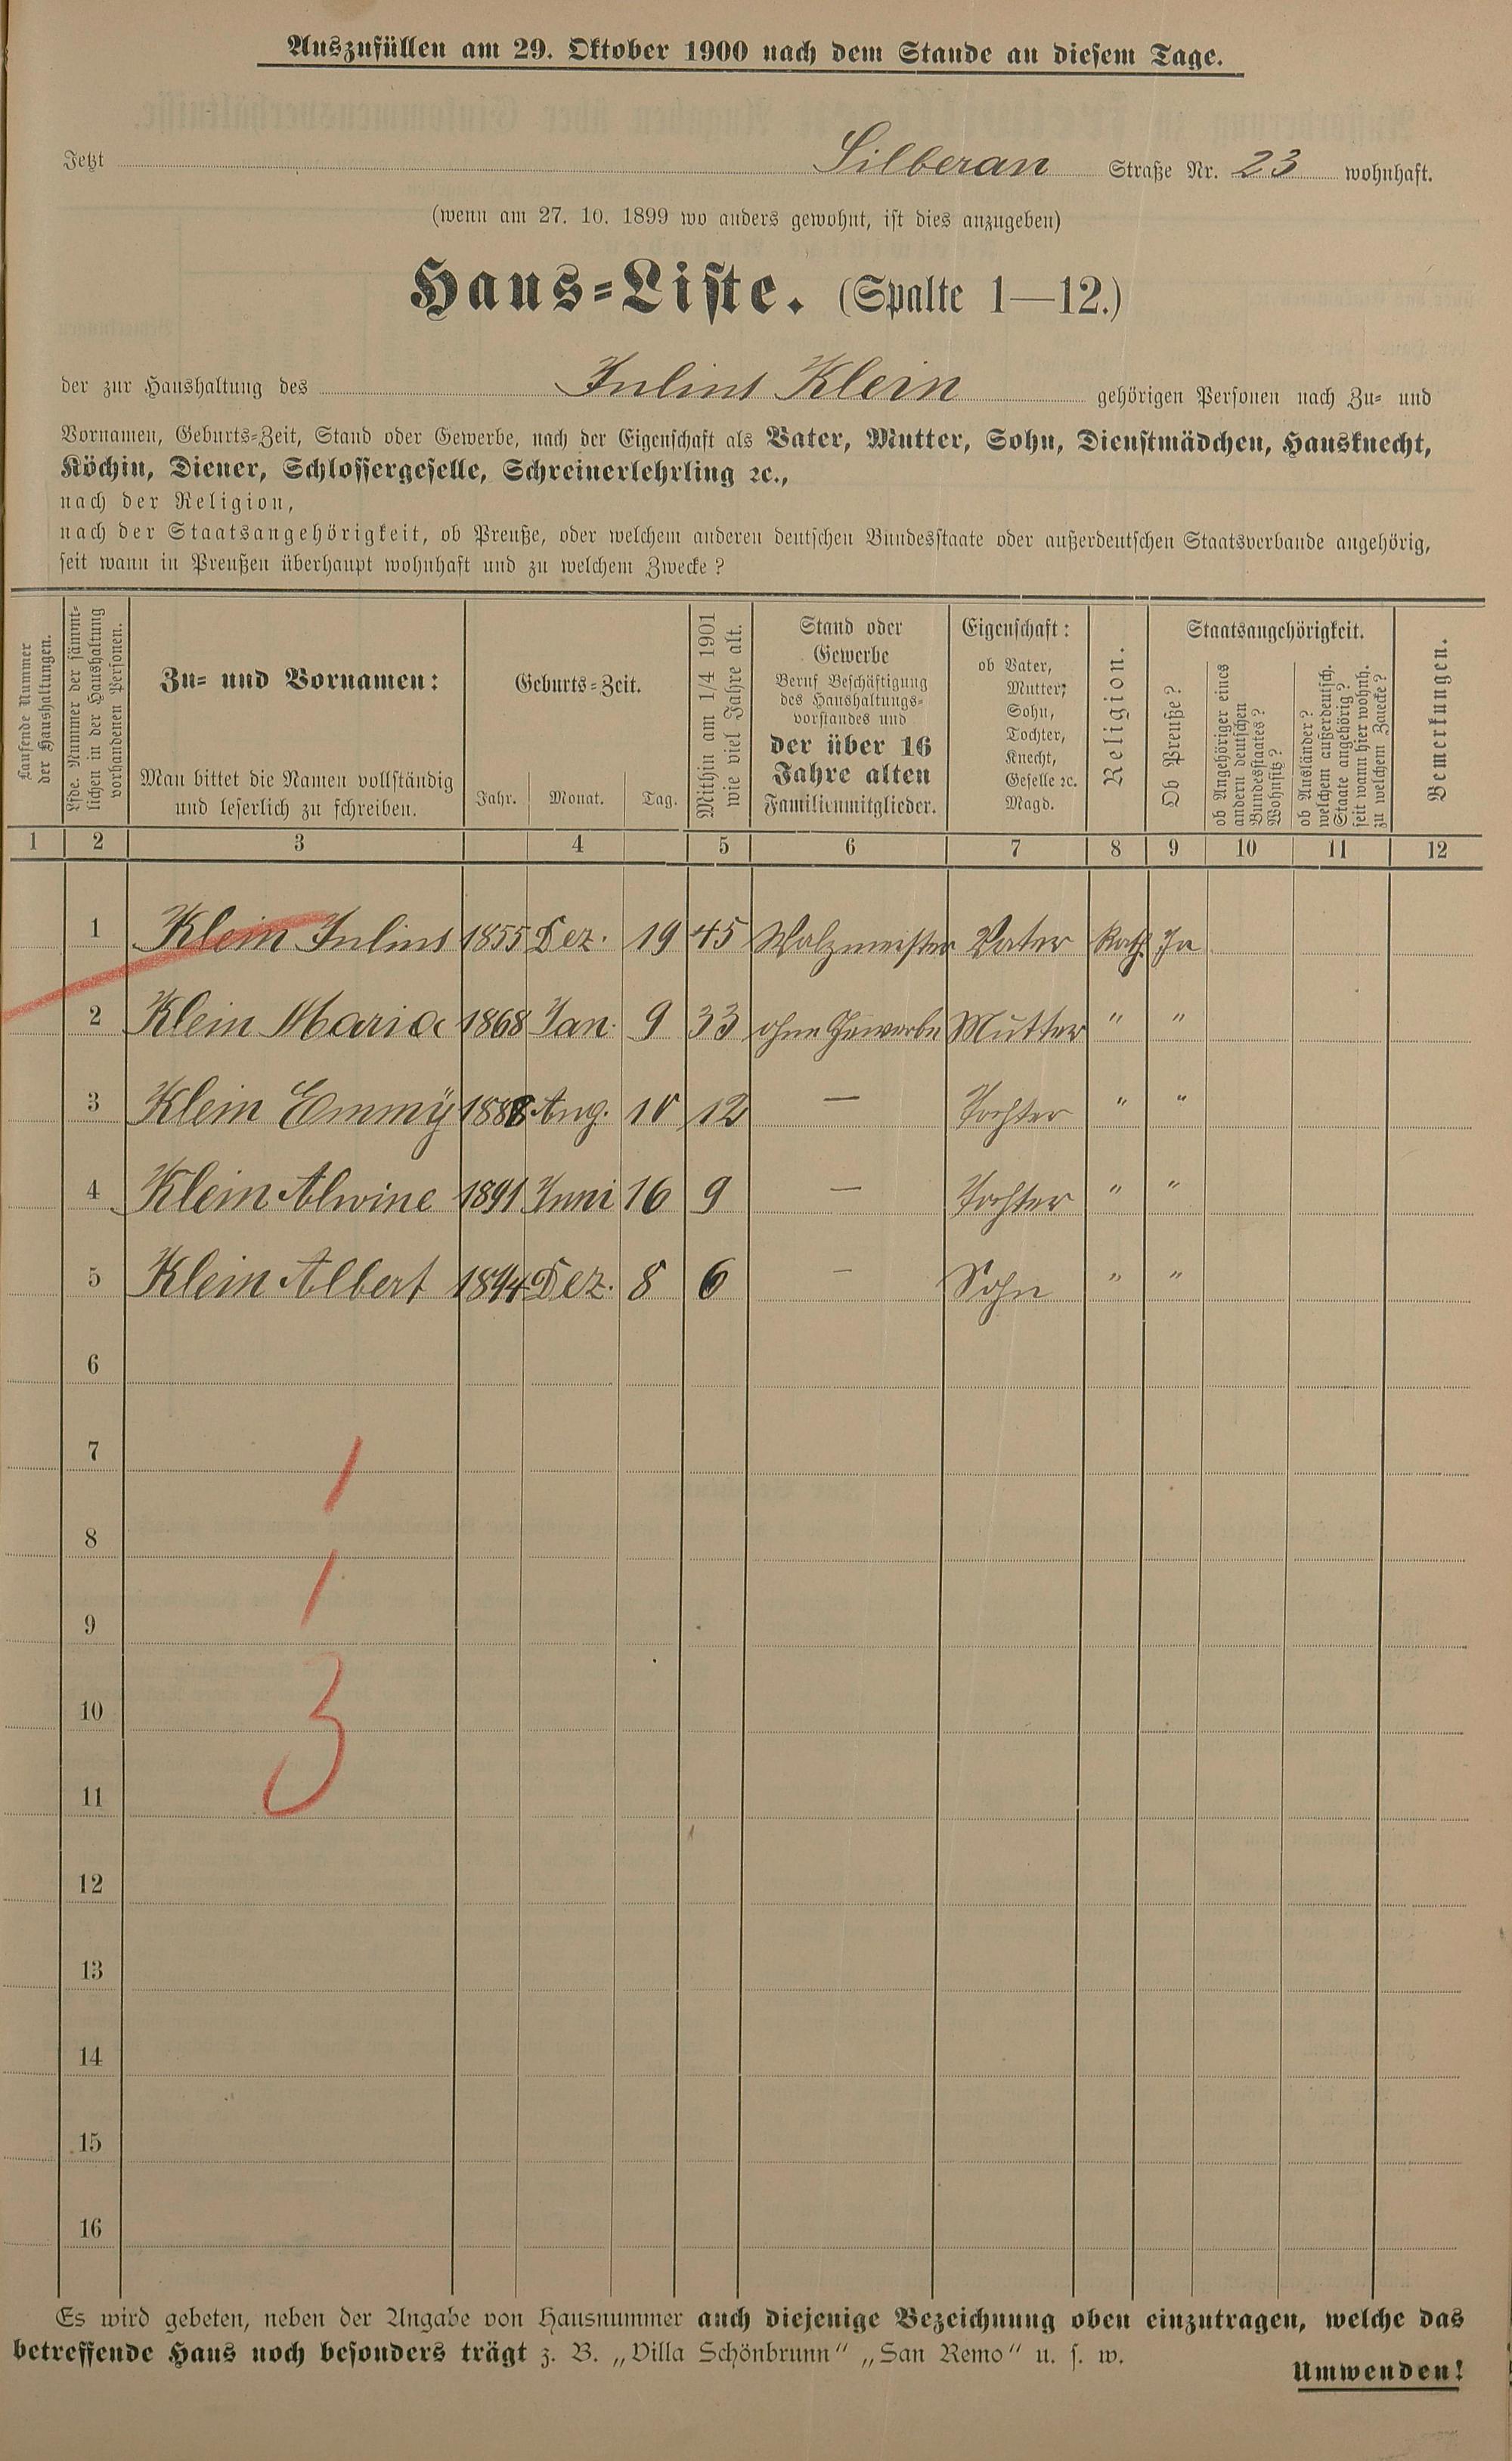 Auszufüllen am 29. Oktober 1900 nach dem Stande an diesem Tage.
Jetzt Silberau Straße Nr. 23 wohnhaft.
(wenn am 27. 10. 1899 wo anders gewohnt, ist dies anzugeben)
Haus-Liste. (Spalte 1—12.)
der zur Haushaltung des Julius Klein gehörigen Personen nach Zu- und
Vornamen, Geburts-Zeit, Stand oder Gewerbe, nach der Eigenschaft als Vater, Mutter, Sohn, Dienstmädchen, Hausknecht,
Köchin, Diener, Schlossergeselle, Schreinerlehrling ꝛc.,
nach der Religion,
nach der Staatsangehörigkeit, ob Preuße, oder welchem anderen deutschen Bundesstaate oder außerdeutschen Staatsverbande angehörig,
seit wann in Preußen überhaupt wohnhaft und zu welchem Zwecke?
Laufende Nummer
der Haushaltungen.
Lfde. Nummer der sämmt-
lichen in der Haushaltung
vorhandenen Personen.
Zu- und Vornamen:
Man bittet die Namen vollständig
und leserlich zu schreiben.
Geburts-Zeit.
Jahr. Monat. Tag.
Mithin am 1/4 1901
wie viel Jahre alt.
Stand oder
Gewerbe
Beruf Beschäftigung
des Haushaltungs-
vorstandes und
der über 16
Jahre alten
Familienmitglieder.
Eigenschaft:
ob Vater,
Mutter,
Sohn,
Tochter,
Knecht,
Geselle ꝛc.
Magd.
Religion.
Staatsangehörigkeit.
Ob Preuße?
ob Angehöriger eines
andern deutschen
Bundesstaates?
Wohnsitz?
ob Ausländer?
welchem außerdeutsch.
Staate angehörig?
seit wann hier wohnh.
zu welchem Zwecke?
Bemerkungen.
1 2 3 4 5 6 7 8 9 10 11 12
1 Klein Julius 1855 Dez. 19 45 Walzmeister Vater Kath. Ja
2 Klein Maria 1868 Jan. 9 33 ohne Gewerbe Mutter " "
3 Klein Emmÿ 1888 Aug. 10 12 — Tochter " "
4 Klein Alwine 1891 Juni 16 9 — Tochter " "
5 Klein Albert 1894 Dez. 8 6 — Sohn " "
6
7
1
8
1
9
3
10
11
12
13
14
15
16
Es wird gebeten, neben der Angabe von Hausnummer auch diejenige Bezeichnung oben einzutragen, welche das
betreffende Haus noch besonders trägt z. B. „Villa Schönbrunn" „San Remo" u. s. w.
Umwenden!